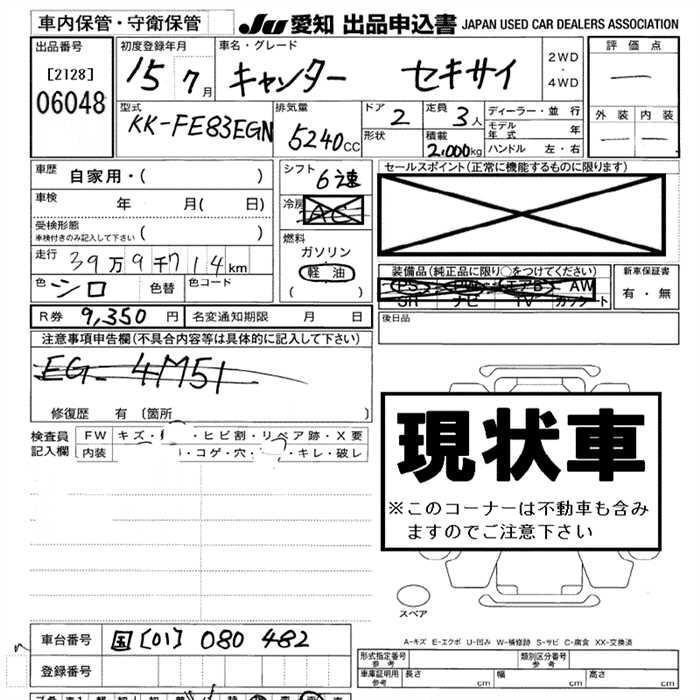 車内保管・守衛保管
JU 愛知 出品申込書 JAPAN USED CAR DEALERS ASSOCIATION
出品番号
[2128]
06048
初度登録年月
15 7月
車名・グレード
キャンター セキサイ
2WD
・
4WD
評価点
―
外装 内装
― ―
型式
KK-FE83EGN
排気量
5240cc
ドア 2
形状
定員 3人
積載
2,000kg
ディーラー・並行
モデル年式 年
ハンドル 左・右
車歴
自家用・( )
車検
年 月( 日)
受検形態
車検付きのみ記入して下さい ( )
走行
39万9千714km
色 シロ 色替 色コード
シフト
6速
冷房
AC
燃料
ガソリン
軽油
( )
セールスポイント(正常に機能するものに限ります)
装備品(純正品に限り○をつけてください)
PS PW エアB AW
SR ナビ TV カセット
新車保証書
有・無
R券 9,350円 名変通知期限 月 日
後日品
注意事項申告欄(不具合内容等は具体的に記入して下さい)
EG 4M51
修復歴 有 〔箇所 〕
検査員
記入欄
FW キズ・ ・ヒビ割・リペア跡・X要
内装 ・コゲ・穴・ ・キレ・破レ
現状車
※このコーナーは不動車も含み
ますのでご注意下さい
スペア
A-キズ E-エクボ U-凹み W-補修跡 S-サビ C-腐食 XX-交換済
車台番号 国[01] 080 482
登録番号
形式指定番号
参考
類別区分番号
参考
車庫証明用
参考
長さ cm 幅 cm 高さ cm